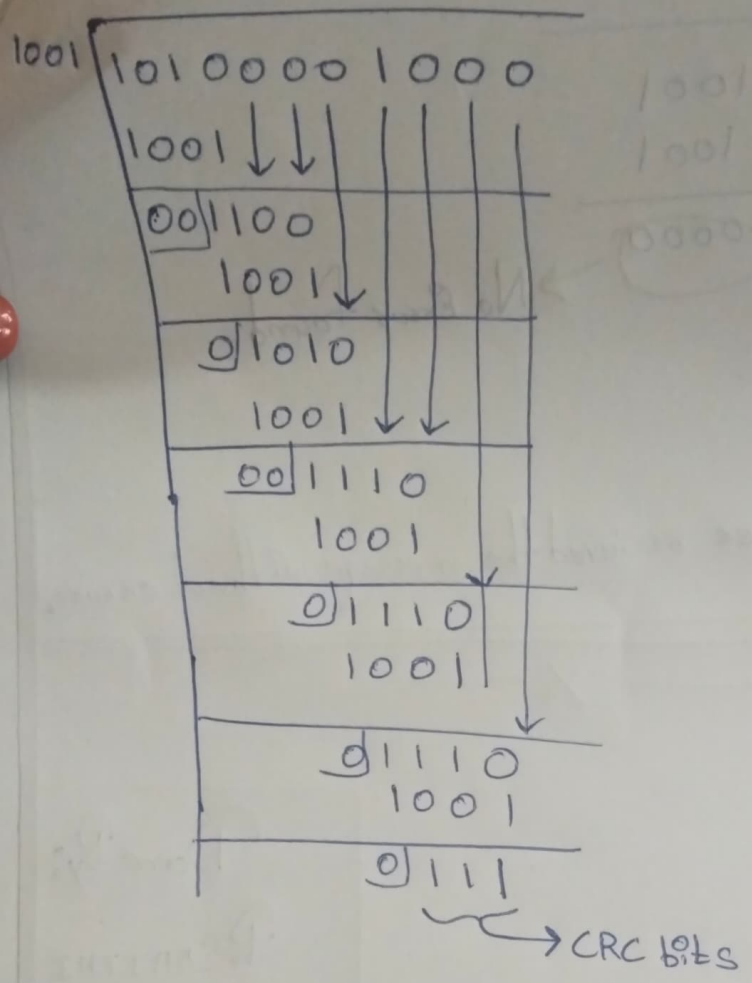 1001 10100001000
1001
001100
1001
01010
1001
001110
1001
01110
1001
01110
1001
0111
CRC bits